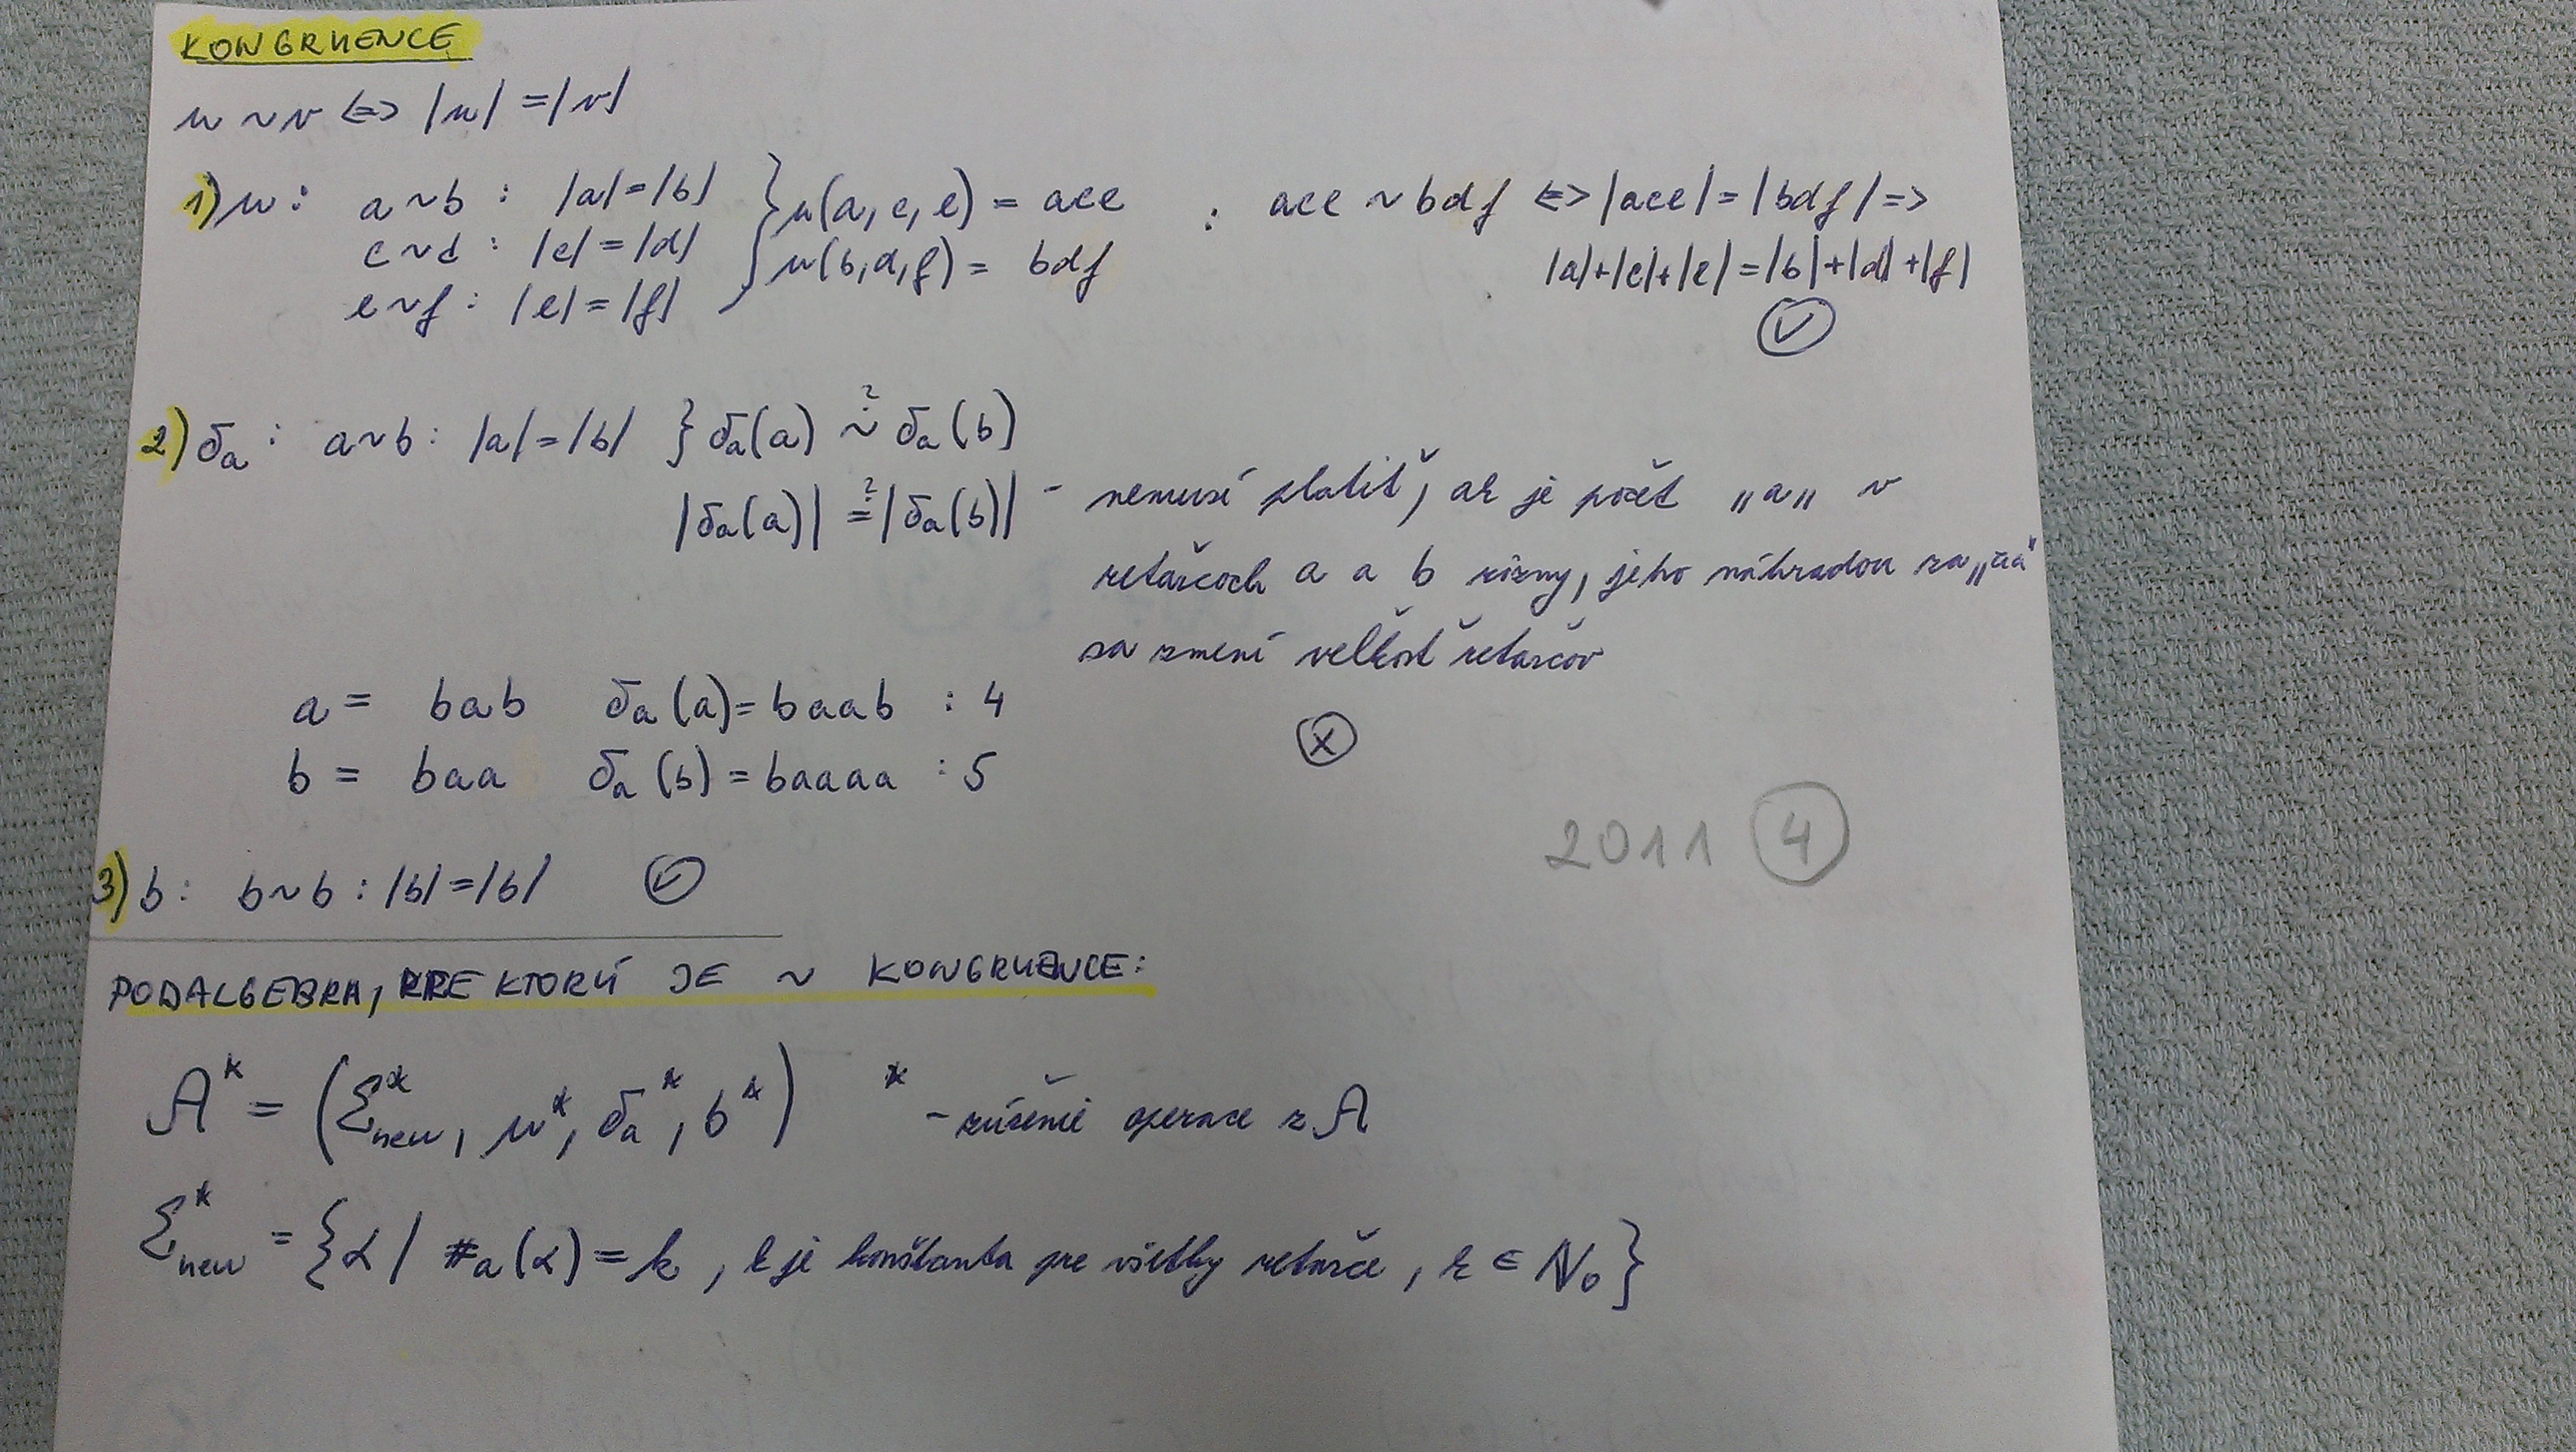 KONGRUENCE
u ~ v <=> |u| = |v|
1) u : a ~ b : |a| = |b| } u(a, c, e) = ace : ace ~ bdf <=> |ace| = |bdf| =>
c ~ d : |c| = |d| } u(b, d, f) = bdf |a|+|c|+|e| = |b|+|d|+|f|
e ~ f : |e| = |f| ✓
2) δa : a ~ b : |a| = |b| } δa(a) ~? δa(b)
|δa(a)| =? |δa(b)| - nemusí platiť, ak je počet „a„ v
reťazcoch a a b rôzny, jeho náhradou za „aa"
sa zmení veľkosť reťazcov
a = bab δa(a) = baab : 4
x
b = baa δa(b) = baaaa : 5
2011 4
3) b : b ~ b : |b| = |b| ✓
PODALGEBRA, PRE KTORÚ JE ~ KONGRUENCE:
A* = (Σ*new, u*, δa*, b*) * - zúžení operace z A
Σ*new = {α | #a(α) = k, k je konštanta pre všetky reťazce, k ∈ N0}